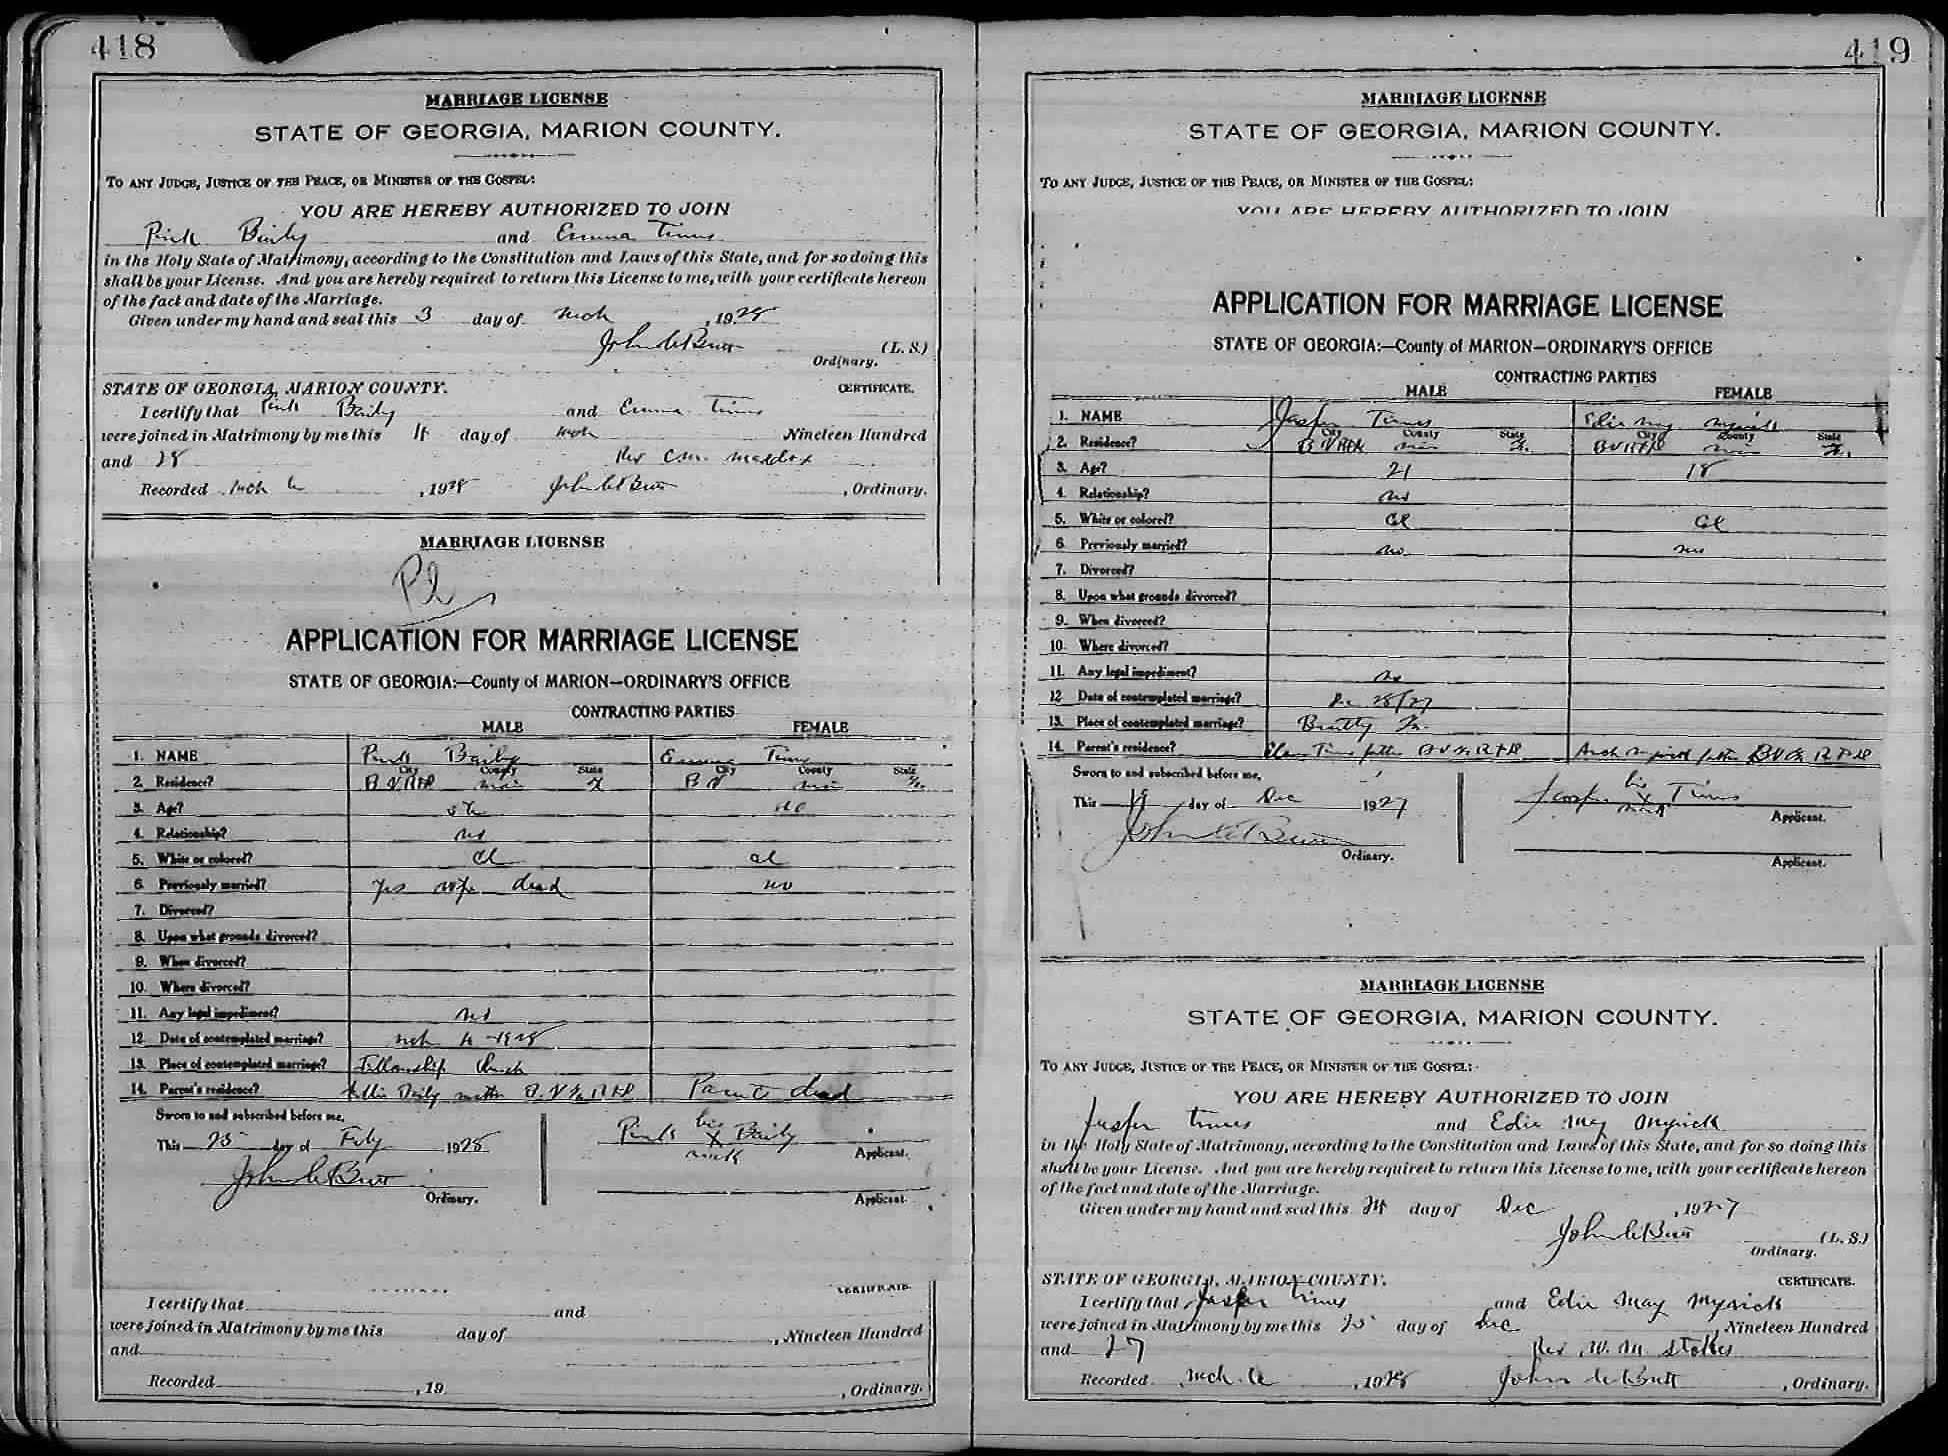 418
MARRIAGE LICENSE
STATE OF GEORGIA, MARION COUNTY.
TO ANY JUDGE, JUSTICE OF THE PEACE, OR MINISTER OF THE GOSPEL:
YOU ARE HEREBY AUTHORIZED TO JOIN
Pink Baily and Emma Tims
in the Holy State of Matrimony, according to the Constitution and Laws of this State, and for so doing this
shall be your License. And you are hereby required to return this License to me, with your certificate hereon
of the fact and date of the Marriage.
Given under my hand and seal this 3 day of Mch, 1928
John C Butt (L. S.)
Ordinary.
STATE OF GEORGIA, MARION COUNTY. CERTIFICATE.
I certify that Pink Baily and Emma Tims
were joined in Matrimony by me this 4 day of Mch Nineteen Hundred
and 28 Rev C.M. Maddox
Recorded Mch 6, 1928 John C Butt, Ordinary.
MARRIAGE LICENSE
APPLICATION FOR MARRIAGE LICENSE
STATE OF GEORGIA:—County of MARION—ORDINARY'S OFFICE
CONTRACTING PARTIES
MALE FEMALE
1. NAME Pink Baily Emma Tims
City County State City County State
2. Residence? B V RFD B V
3. Age?
4. Relationship? no
5. White or colored? Cl Cl
6. Previously married? yes wife dead no
7. Divorced?
8. Upon what grounds divorced?
9. When divorced?
10. Where divorced?
11. Any legal impediment? no
12. Date of contemplated marriage? Mch 4 - 1928
13. Place of contemplated marriage? Fellowship Church
14. Parent's residence? Baily mother B.V Ga RFD Parents dead
Sworn to and subscribed before me,
This 25 day of Feby 1928 Pink his X mark Baily Applicant.
John C Butt
Ordinary. Applicant.
CERTIFICATE.
I certify that and
were joined in Matrimony by me this day of , Nineteen Hundred
and
Recorded , 19 , Ordinary.
419
MARRIAGE LICENSE
STATE OF GEORGIA, MARION COUNTY.
TO ANY JUDGE, JUSTICE OF THE PEACE, OR MINISTER OF THE GOSPEL:
YOU ARE HEREBY AUTHORIZED TO JOIN
APPLICATION FOR MARRIAGE LICENSE
STATE OF GEORGIA:—County of MARION—ORDINARY'S OFFICE
CONTRACTING PARTIES
MALE FEMALE
1. NAME Jasper Tims Edie May Myrick
City County State City County State
2. Residence? B V RFD Ga. B V RFD Ga.
3. Age? 21 18
4. Relationship? no
5. White or colored? Col Col
6. Previously married? no no
7. Divorced?
8. Upon what grounds divorced?
9. When divorced?
10. Where divorced?
11. Any legal impediment? no
12. Date of contemplated marriage? Dec 25/27
13. Place of contemplated marriage? Ga.
14. Parent's residence? Tims father B V Ga R F D Arch Myrick father B V Ga R F D
Sworn to and subscribed before me,
This 19 day of Dec 1927 Jasper his X mark Tims Applicant.
John C Butt
Ordinary. Applicant.
MARRIAGE LICENSE
STATE OF GEORGIA, MARION COUNTY.
TO ANY JUDGE, JUSTICE OF THE PEACE, OR MINISTER OF THE GOSPEL:
YOU ARE HEREBY AUTHORIZED TO JOIN
Jasper Times and Edie May Myrick
in the Holy State of Matrimony, according to the Constitution and Laws of this State, and for so doing this
shall be your License. And you are hereby required to return this License to me, with your certificate hereon
of the fact and date of the Marriage.
Given under my hand and seal this 24 day of Dec, 1927
John C Butt (L. S.)
Ordinary.
STATE OF GEORGIA, MARION COUNTY. CERTIFICATE.
I certify that Jasper Times and Edie May Myrick
were joined in Matrimony by me this 25 day of Dec Nineteen Hundred
and 27 Rev. W. M. Stokes
Recorded Mch 6, 1928 John C Butt, Ordinary.